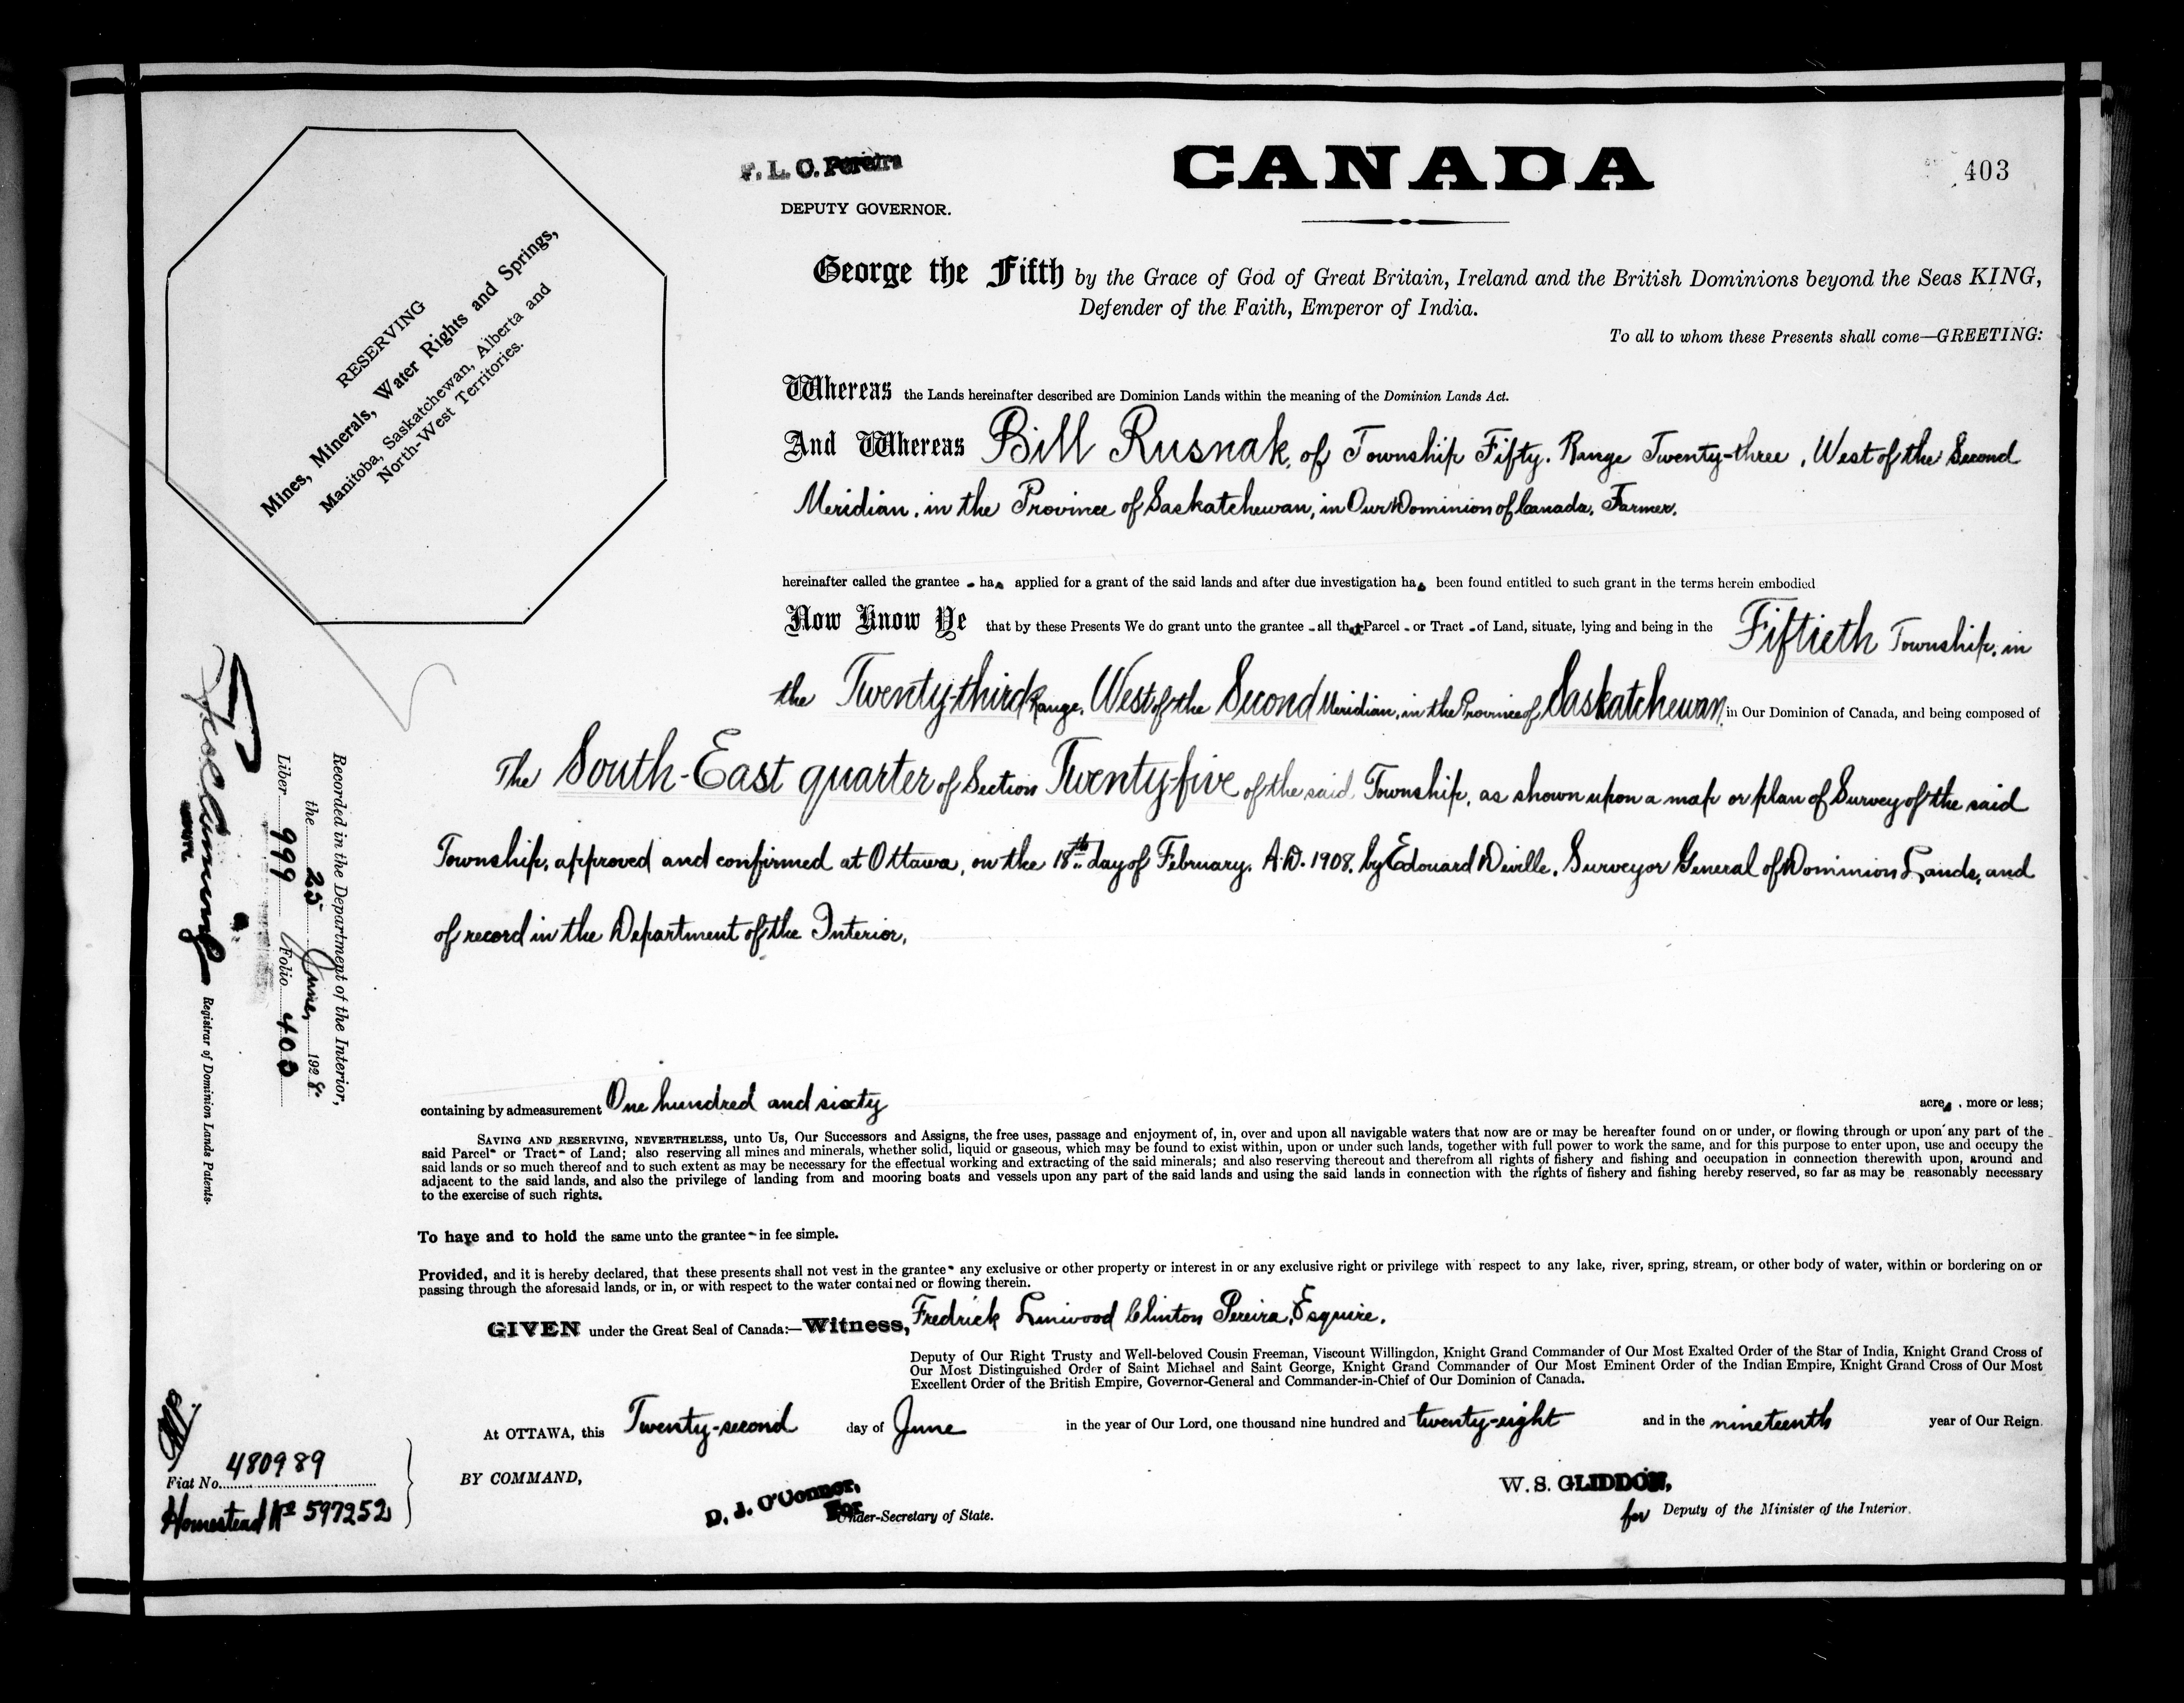 F. L. C. Pereira
DEPUTY GOVERNOR.
CANADA
403
RESERVING
Mines, Minerals, Water Rights and Springs,
Manitoba, Saskatchewan, Alberta and
North-West Territories.
George the Fifth by the Grace of God of Great Britain, Ireland and the British Dominions beyond the Seas KING,
Defender of the Faith, Emperor of India.
To all to whom these Presents shall come—GREETING:
Whereas the Lands hereinafter described are Dominion Lands within the meaning of the Dominion Lands Act.
And Whereas Bill Rusnak, of Township Fifty, Range Twenty-three, West of the Second
Meridian, in the Province of Saskatchewan, in Our Dominion of Canada, Farmer,
hereinafter called the grantee - has applied for a grant of the said lands and after due investigation has been found entitled to such grant in the terms herein embodied
Now Know Ye that by these Presents We do grant unto the grantee - all that Parcel - or Tract - of Land, situate, lying and being in the Fiftieth Township, in
the Twenty-third Range, West of the Second Meridian, in the Province of Saskatchewan, in Our Dominion of Canada, and being composed of
The South-East quarter of Section Twenty-five of the said Township, as shown upon a map or plan of Survey of the said
Township, approved and confirmed at Ottawa, on the 18th day of February, A.D. 1908, by Edouard Deville, Surveyor General of Dominion Lands, and
of record in the Department of the Interior,
containing by admeasurement One hundred and sixty acres, more or less;
SAVING AND RESERVING, NEVERTHELESS, unto Us, Our Successors and Assigns, the free uses, passage and enjoyment of, in, over and upon all navigable waters that now are or may be hereafter found on or under, or flowing through or upon any part of the
said Parcel- or Tract- of Land; also reserving all mines and minerals, whether solid, liquid or gaseous, which may be found to exist within, upon or under such lands, together with full power to work the same, and for this purpose to enter upon, use and occupy the
said lands or so much thereof and to such extent as may be necessary for the effectual working and extracting of the said minerals; and also reserving thereout and therefrom all rights of fishery and fishing and occupation in connection therewith upon, around and
adjacent to the said lands, and also the privilege of landing from and mooring boats and vessels upon any part of the said lands and using the said lands in connection with the rights of fishery and fishing hereby reserved, so far as may be reasonably necessary
to the exercise of such rights.
To have and to hold the same unto the grantee - in fee simple.
Provided, and it is hereby declared, that these presents shall not vest in the grantee - any exclusive or other property or interest in or any exclusive right or privilege with respect to any lake, river, spring, stream, or other body of water, within or bordering on or
passing through the aforesaid lands, or in, or with respect to the water contained or flowing therein.
GIVEN under the Great Seal of Canada:—Witness, Fredrick Linwood Clinton Pereira, Esquire,
Deputy of Our Right Trusty and Well-beloved Cousin Freeman, Viscount Willingdon, Knight Grand Commander of Our Most Exalted Order of the Star of India, Knight Grand Cross of
Our Most Distinguished Order of Saint Michael and Saint George, Knight Grand Commander of Our Most Eminent Order of the Indian Empire, Knight Grand Cross of Our Most
Excellent Order of the British Empire, Governor-General and Commander-in-Chief of Our Dominion of Canada.
At OTTAWA, this Twenty-second day of June in the year of Our Lord, one thousand nine hundred and twenty-eight and in the nineteenth year of Our Reign.
BY COMMAND,
D. J. O'Connor,
For
Under-Secretary of State.
W. S. GLIDDON,
for Deputy of the Minister of the Interior.
Recorded in the Department of the Interior,
the 25 June, 1928.
Liber 999 Folio 403
Registrar of Dominion Lands Patents.
Fiat No. 480989
Homestead No 597252